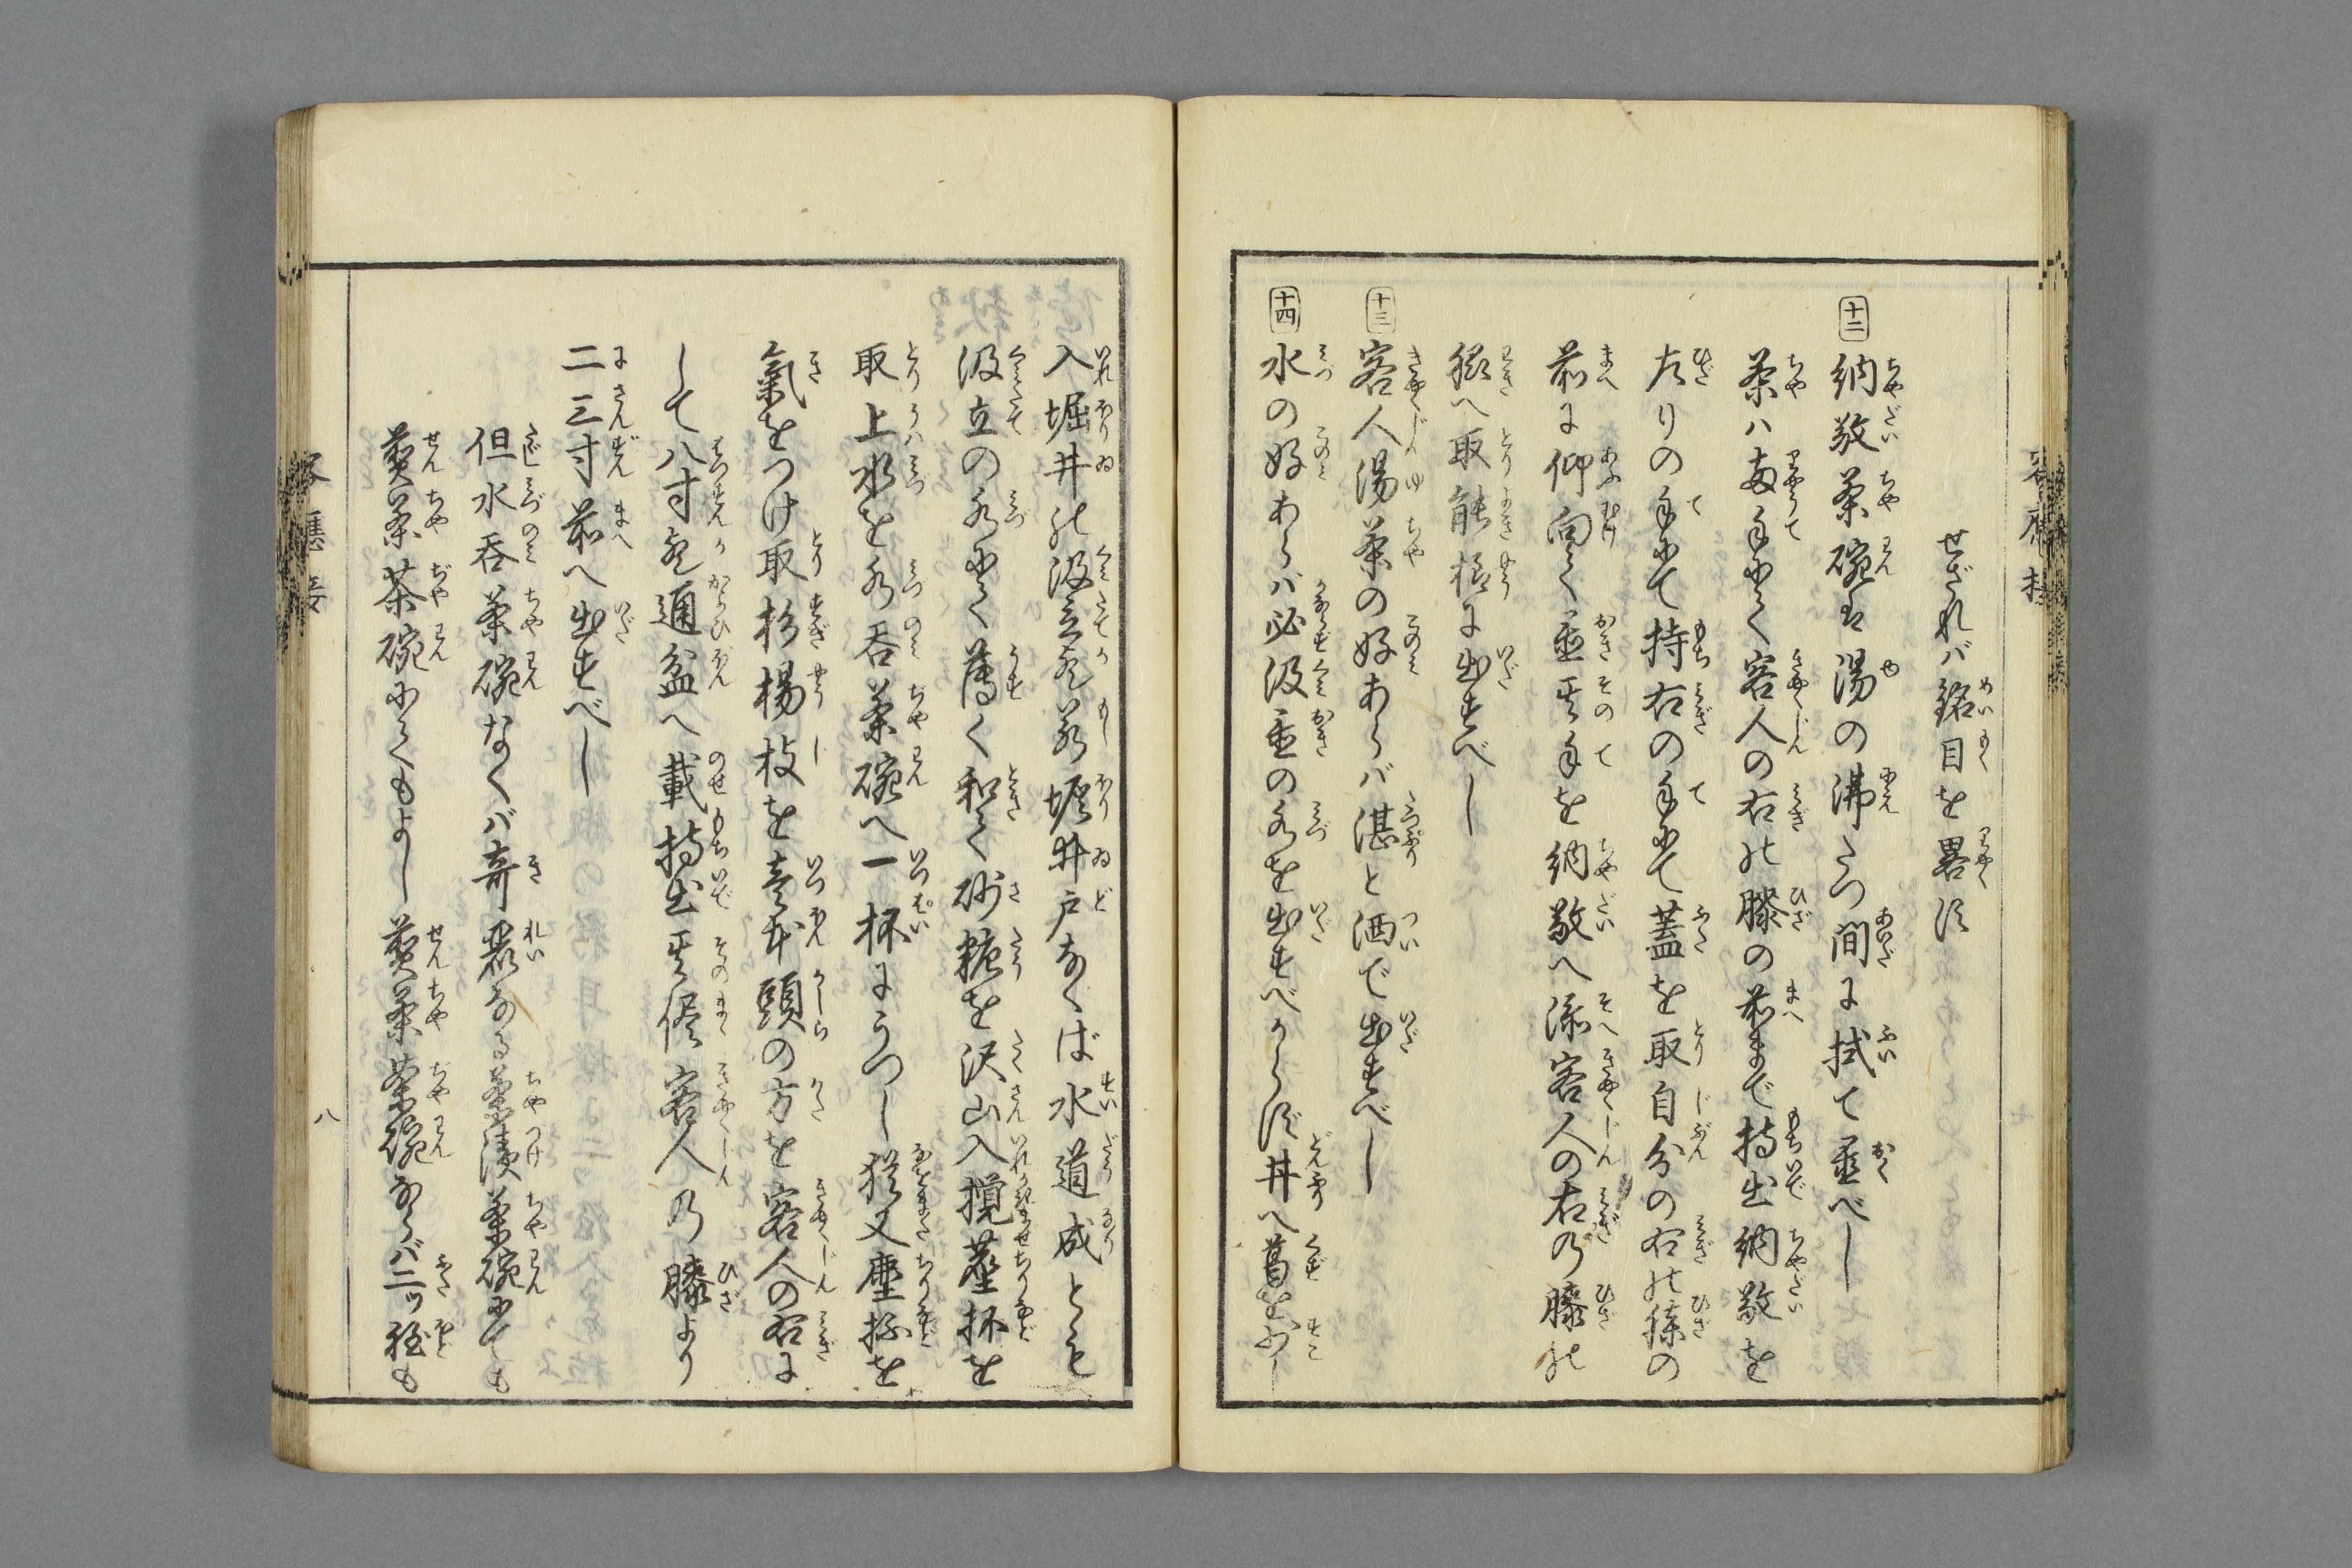 せざれバ銘目を畧須
十二 納敬茶碗は湯の沸たつ間に拭て置べし
茶ハ両手にて客人の右の膝の前まで持出納敬を
左りの手にて持右の手にて蓋を取自分の右の膝の
前に仰向て置其手を納敬へ添客人の右の膝の
脇へ取能様に出すべし
十三 客人湯茶の好あらバ湛と洒で出すべし
十四 水の好あらバ必汲置の水を出すべからず丼へ葛を少し
入堀井の汲立か若堀井戸なくば水道成とも
汲立の水にて薄く和て砂糖を沢山入攪塵抔を
取上水を水呑茶碗へ一杯にうつし猶又塵抔を
氣をつけ取杉楊枝を壱本頭の方を客人の右に
して八寸か通盆へ載持出其侭客人の膝より
二三寸前へ出すべし
但水呑茶碗なくバ奇麗なる茶漬茶碗にても
煎茶茶碗にてもよし煎茶茶碗ならバ二ツ程も
客應接
八